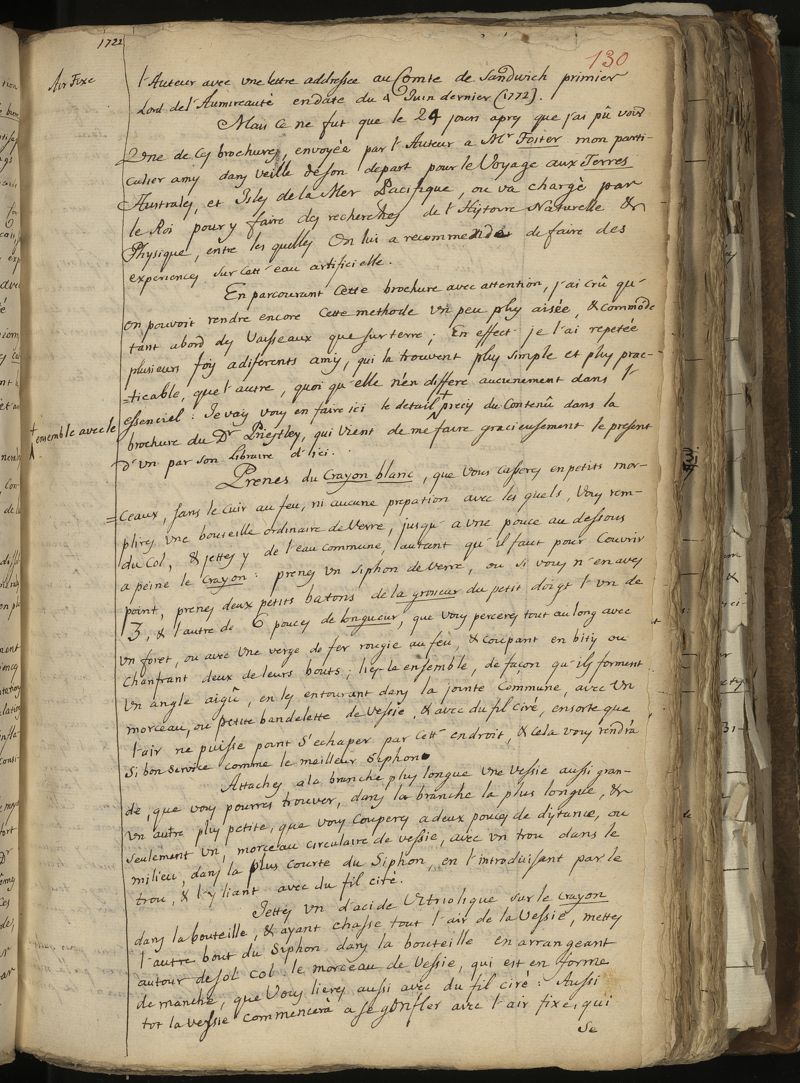 1722
130
Air Fixe
l'Auteur avec une lettre addressée au Comte de Sandwich primier
Lord de l'Aumireauté en date du 4 Juin dernier (1772).
Mais ce ne fut que le 24 jours apres que j'ai pû voir
Une de ces brochures, envoyée par l'Auteur a Mr Foster mon parti-
culier amy dans veille de son depart pour le Voyage aux Terres
Australes, et Isles de la Mer Pacifique, ou va chargé par
le Roi pour y faire des recherches de l'Histoire Naturelle &
Physique, entre les quelles On lui a recommendé de faire des
experiences sur cett' eau artificielle.
En parcourant Cette brochure avec attention, j'ai crû qu'
on pouvoit rendre encore Cette methode un peu plus aisée, & commode
tant abord des Vaisseaux que sur terre; En effect je l'ai repetée
plusieurs fois a diferents amis, qui la trouvent plus simple et plus prac-
=ticable, que l'autre, quoi qu'elle n'en differe aucunement dans l'
essenciel: Je vais vous en faire ici le detail + precis du Contenû dans la
+ ensemble avec le
brochure du Dr Priestley, qui vient de me faire gracieusement le present
d'un par son libraire d'ici.
Prenes du Crayon blanc, que vous casseres en petits mor-
=ceaux, sans le cuir au feu, ni aucune prepation avec les quels, Vous rem-
plires une bouteille ordinaire de Verre, jusqu' a une pouce au dessous
du Col, & jettes y de l'eau commune, autant qu'il faut pour Couvrir
a peine le Crayon: prenes un Siphon de verre, ou si vous n'en aves
point, prenes deux petits batons de la groseur du petit doigt l'un de
3, & l'autre de 6 pouces de longueur, que vous perceres tout au long avec
un foret, ou avec une verge de fer rougie au feu, & coupant en bisis ou
Chanfrant deux de leurs bouts; lies-la ensemble, de façon qu'ils forment
un angle aigû, en les entourant dans la jointe Commune, avec un
morceau, ou petite bandelette de vessie, & avec du fil ciré, ensorte que
l'air ne puisse point s'echaper par cett' endroit, & Cela vous rendrá
si bon service comme le meilleur Siphon.
Attaches a la branche plus longue une vessie aussi gran-
de, que vous pourres trouver, dans la branche la plus longue, &
un autre plus petite, que vous couperes a deux pouces de distance, ou
seulement un, morceau circulaire de vessie, avec un trou dans le
milieu, dans la plus courte du Siphon, en l'introduisant par le
trou, & l'y liant avec du fil ciré.
Jettes un d'acide Vitriolique sur le crayon
dans la bouteille, & ayant chassé tout l'air de la Vessie, mettes
l'autre bout du Siphon dans la bouteille en arrangeant
autour de sol col le morceau de vessie, qui est en forme
de manche, que vous lieres aussi avec du fil ciré: Aussi
tot la vessie commencerà a se gonfler avec l'air fixe, qui
se